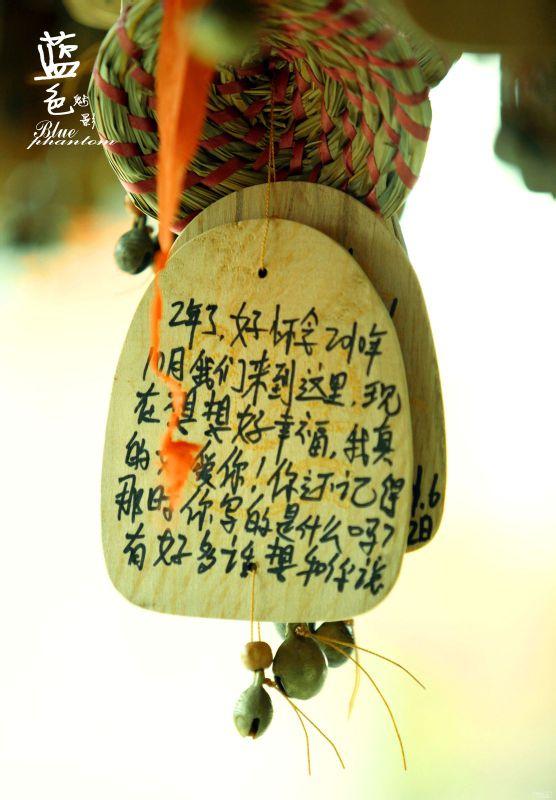 蓝色魅影
Blue
phantom
2年了，好怀念2010年
10月我们来到这里，现
在想想好幸福，我真
的 爱你！你还记得
那时你写的是什么吗？
有好多话想和你说
.6
2日